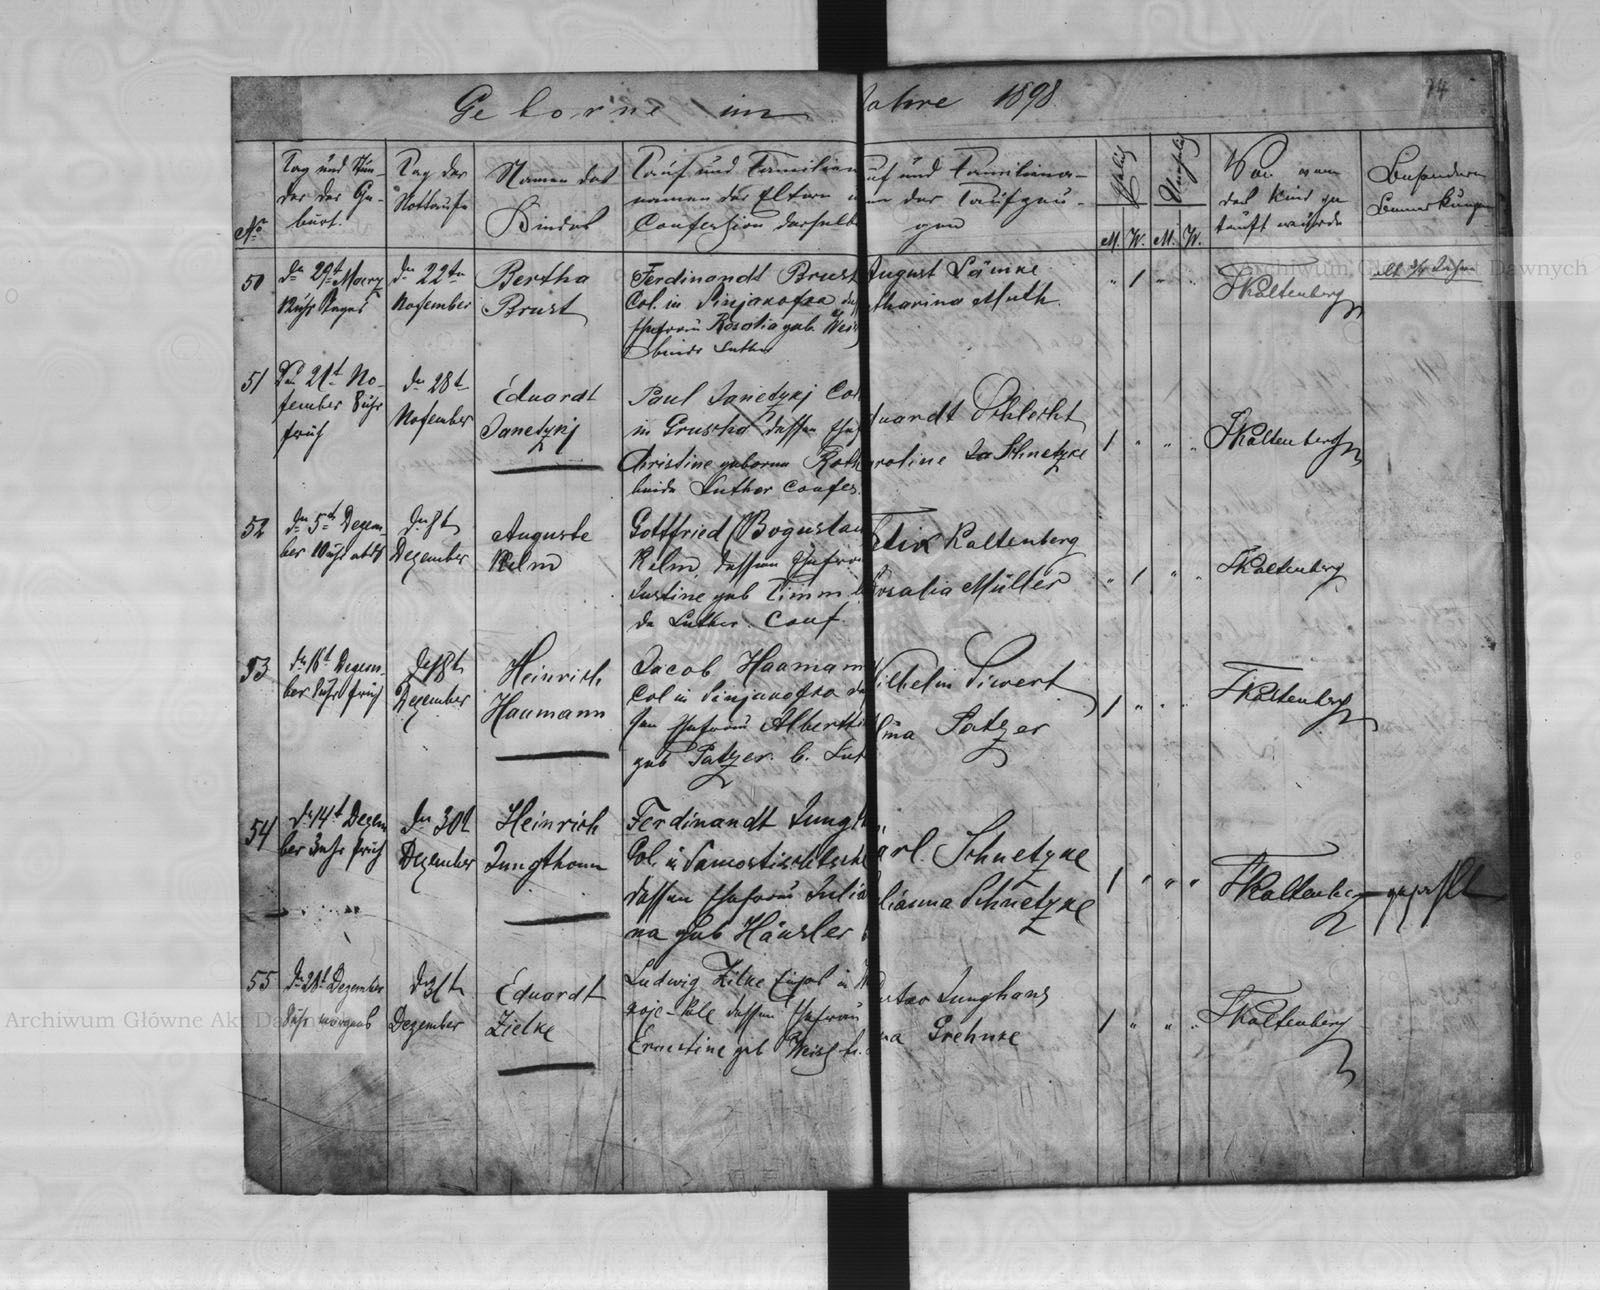 Geborne im Jahre 1898
74
No
Tag und Stun-
der der Ge-
burt.
Tag der
Nottaufe
Namen des
Kindes
Tauf und Familien
namen der Eltern u
Confession derselbe
Tauf und Familienna-
men der Taufzeu-
gen
Ehelig
Unehelig
M. W. M. W.
Von wem
das Kind ge-
tauft wurde
Besondere
Bemerkungen
50
dn 29t Maerz
den 22tn
November
Bertha
Brust
Ferdinandt Brust
Col. in Sinjakofka
Ehefrau Rosalia geb. Weis
beide Luther
August Lämke
Katharina Muth
" 1 " "
F Kaltenberg
alt 3/4 Jahre
51
Den 21t No-
fember 8 uhr
früh
dn 28t
November
Eduardt
Janetzkj
Paul Janetzkj Col
in Gruscha dessen Ehef
Christine geborne Roth
beide Luther Confes.
Eduardt Schlecht
Karoline Schnetzke
1 " " "
F Kaltenberg
52
dn 5t Dezem
ber 10 uhr abds
dn 8t
Dezember
Auguste
Relm
Gottfried Boguslau
Relm, dessen Ehefrau
Justine geb Timm bei
de Luther. Conf.
Felix Kaltenberg
Rosalia Müller
" 1 " "
F Kaltenberg
53
Dezem
ber 8 uhr früh
de 18t
Dezember
Heinrich
Haumann
Jacob Haumann
Col in Sinjakofka des
sen Ehefrau Alberti
geb Patzer. b. Lut
Wilhelm Siwert
Patzer
1 " " "
F Kaltenberg
54
dn 14t Dezem
ber 3 uhr früh
dn 30t
Dezember
Heinrich
Jungthonn
Ferdinandt Jungt
Col. in
dessen Ehefrau Julia
na geb Häusler
Karl. Schnetzke
Juliänna Schnetzke
1 " " "
F Kaltenberg
55
dn 28t Dezember
8 uhr morgens
dn 31t
Dezember
Eduardt
Zielke
Ludwig Zilke in
dessen Ehefrau
Ernestine geb Weis b.
Gustav Junghans
Grehnke
1 " " "
F Kaltenberg
Archiwum Główne Akt Dawnych
Archiwum Główne Akt Dawnych